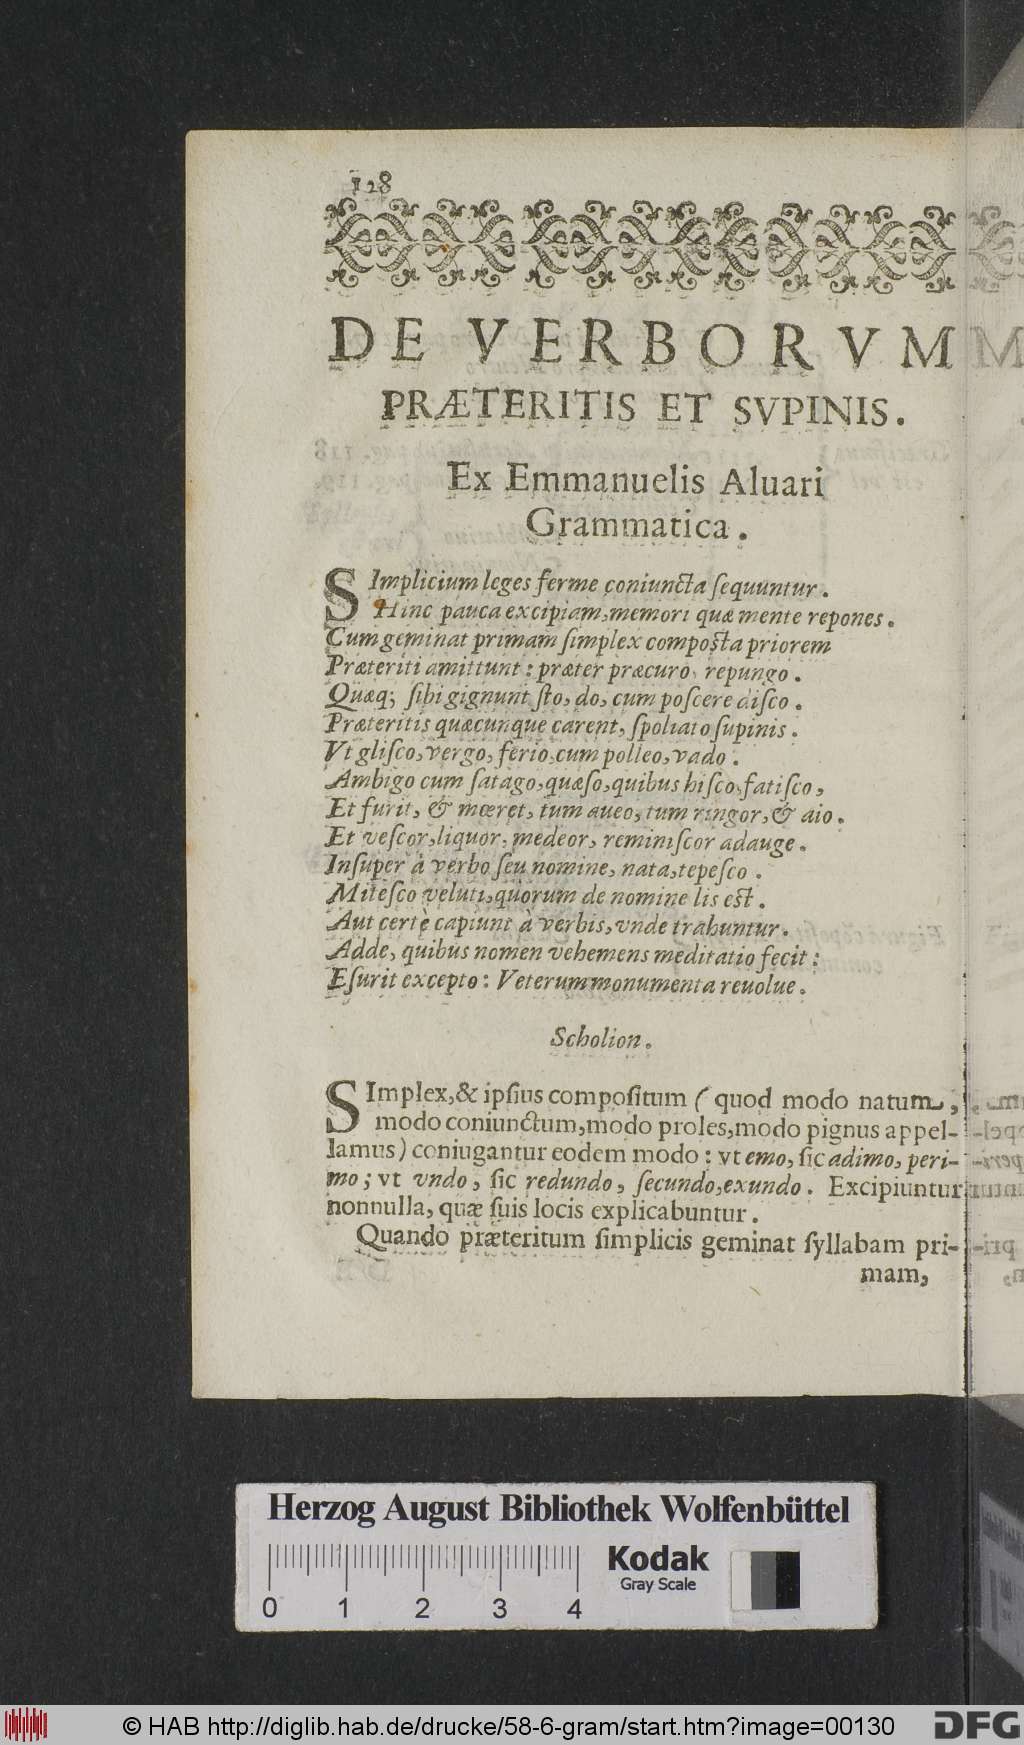 128
DE VERBORVM
PRÆTERITIS ET SVPINIS.
Ex Emmanuelis Aluari
Grammatica.
SImplicium leges ferme coniuncta ſequuntur.
Hinc pauca excipiam, memori quæ mente repones.
Cum geminat primam ſimplex compoſta priorem
Præteriti amittunt: præter præcuro, repungo.
Quæq; ſibi gignunt ſto, do, cum poſcere diſco.
Præteritis quæcunque carent, ſpoliato ſupinis.
Vt gliſco, vergo, ferio, cum polleo, vado.
Ambigo cum ſatago, quæſo, quibus hiſco, fatiſco,
Et furit, & mœret, tum aueo, tum ringor, & aio.
Et veſcor, liquor, medeor, reminiſcor adauge.
Inſuper à verbo ſeu nomine, nata, tepeſco.
Miteſco veluti, quorum de nomine lis eſt.
Aut certè capiunt à verbis, vnde trahuntur.
Adde, quibus nomen vehemens meditatio fecit:
Eſurit excepto: Veterum monumenta reuolue.
Scholion.
SImplex, & ipſius compoſitum ( quod modo natum,
modo coniunctum, modo proles, modo pignus appel-
lamus) coniugantur eodem modo: vt emo, ſic adimo, peri-
mo; vt vndo, ſic redundo, ſecundo, exundo. Excipiuntur
nonnulla, quæ ſuis locis explicabuntur.
Quando præteritum ſimplicis geminat ſyllabam pri-
mam,
Herzog August Bibliothek Wolfenbüttel
Kodak
Gray Scale
0 1 2 3 4
© HAB http://diglib.hab.de/drucke/58-6-gram/start.htm?image=00130
DFG